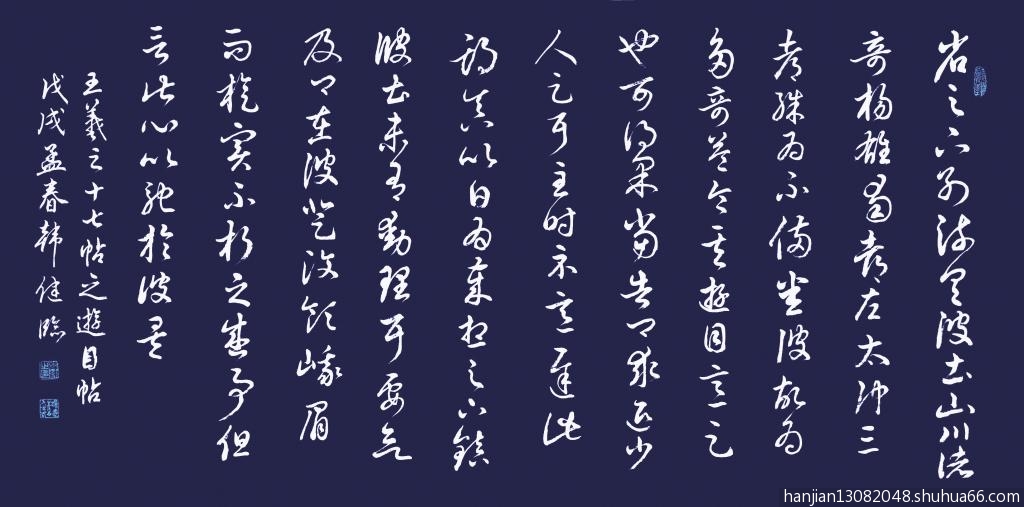 省足下別疏具彼土山川諸
奇楊雄蜀都左太沖三
都殊為不備悉彼故為
多奇益令其遊目意足
也可得果當告卿求迎少
人足耳至時示意遲此
期真以日為歲想足下鎮
彼土未有動理耳要欲
及卿在彼登汶領峨眉
而旋實不朽之盛事但
言此心以馳於彼矣
王羲之十七帖之遊目帖
戊戌孟春韩健臨
hanjian13082048.shuhua66.com